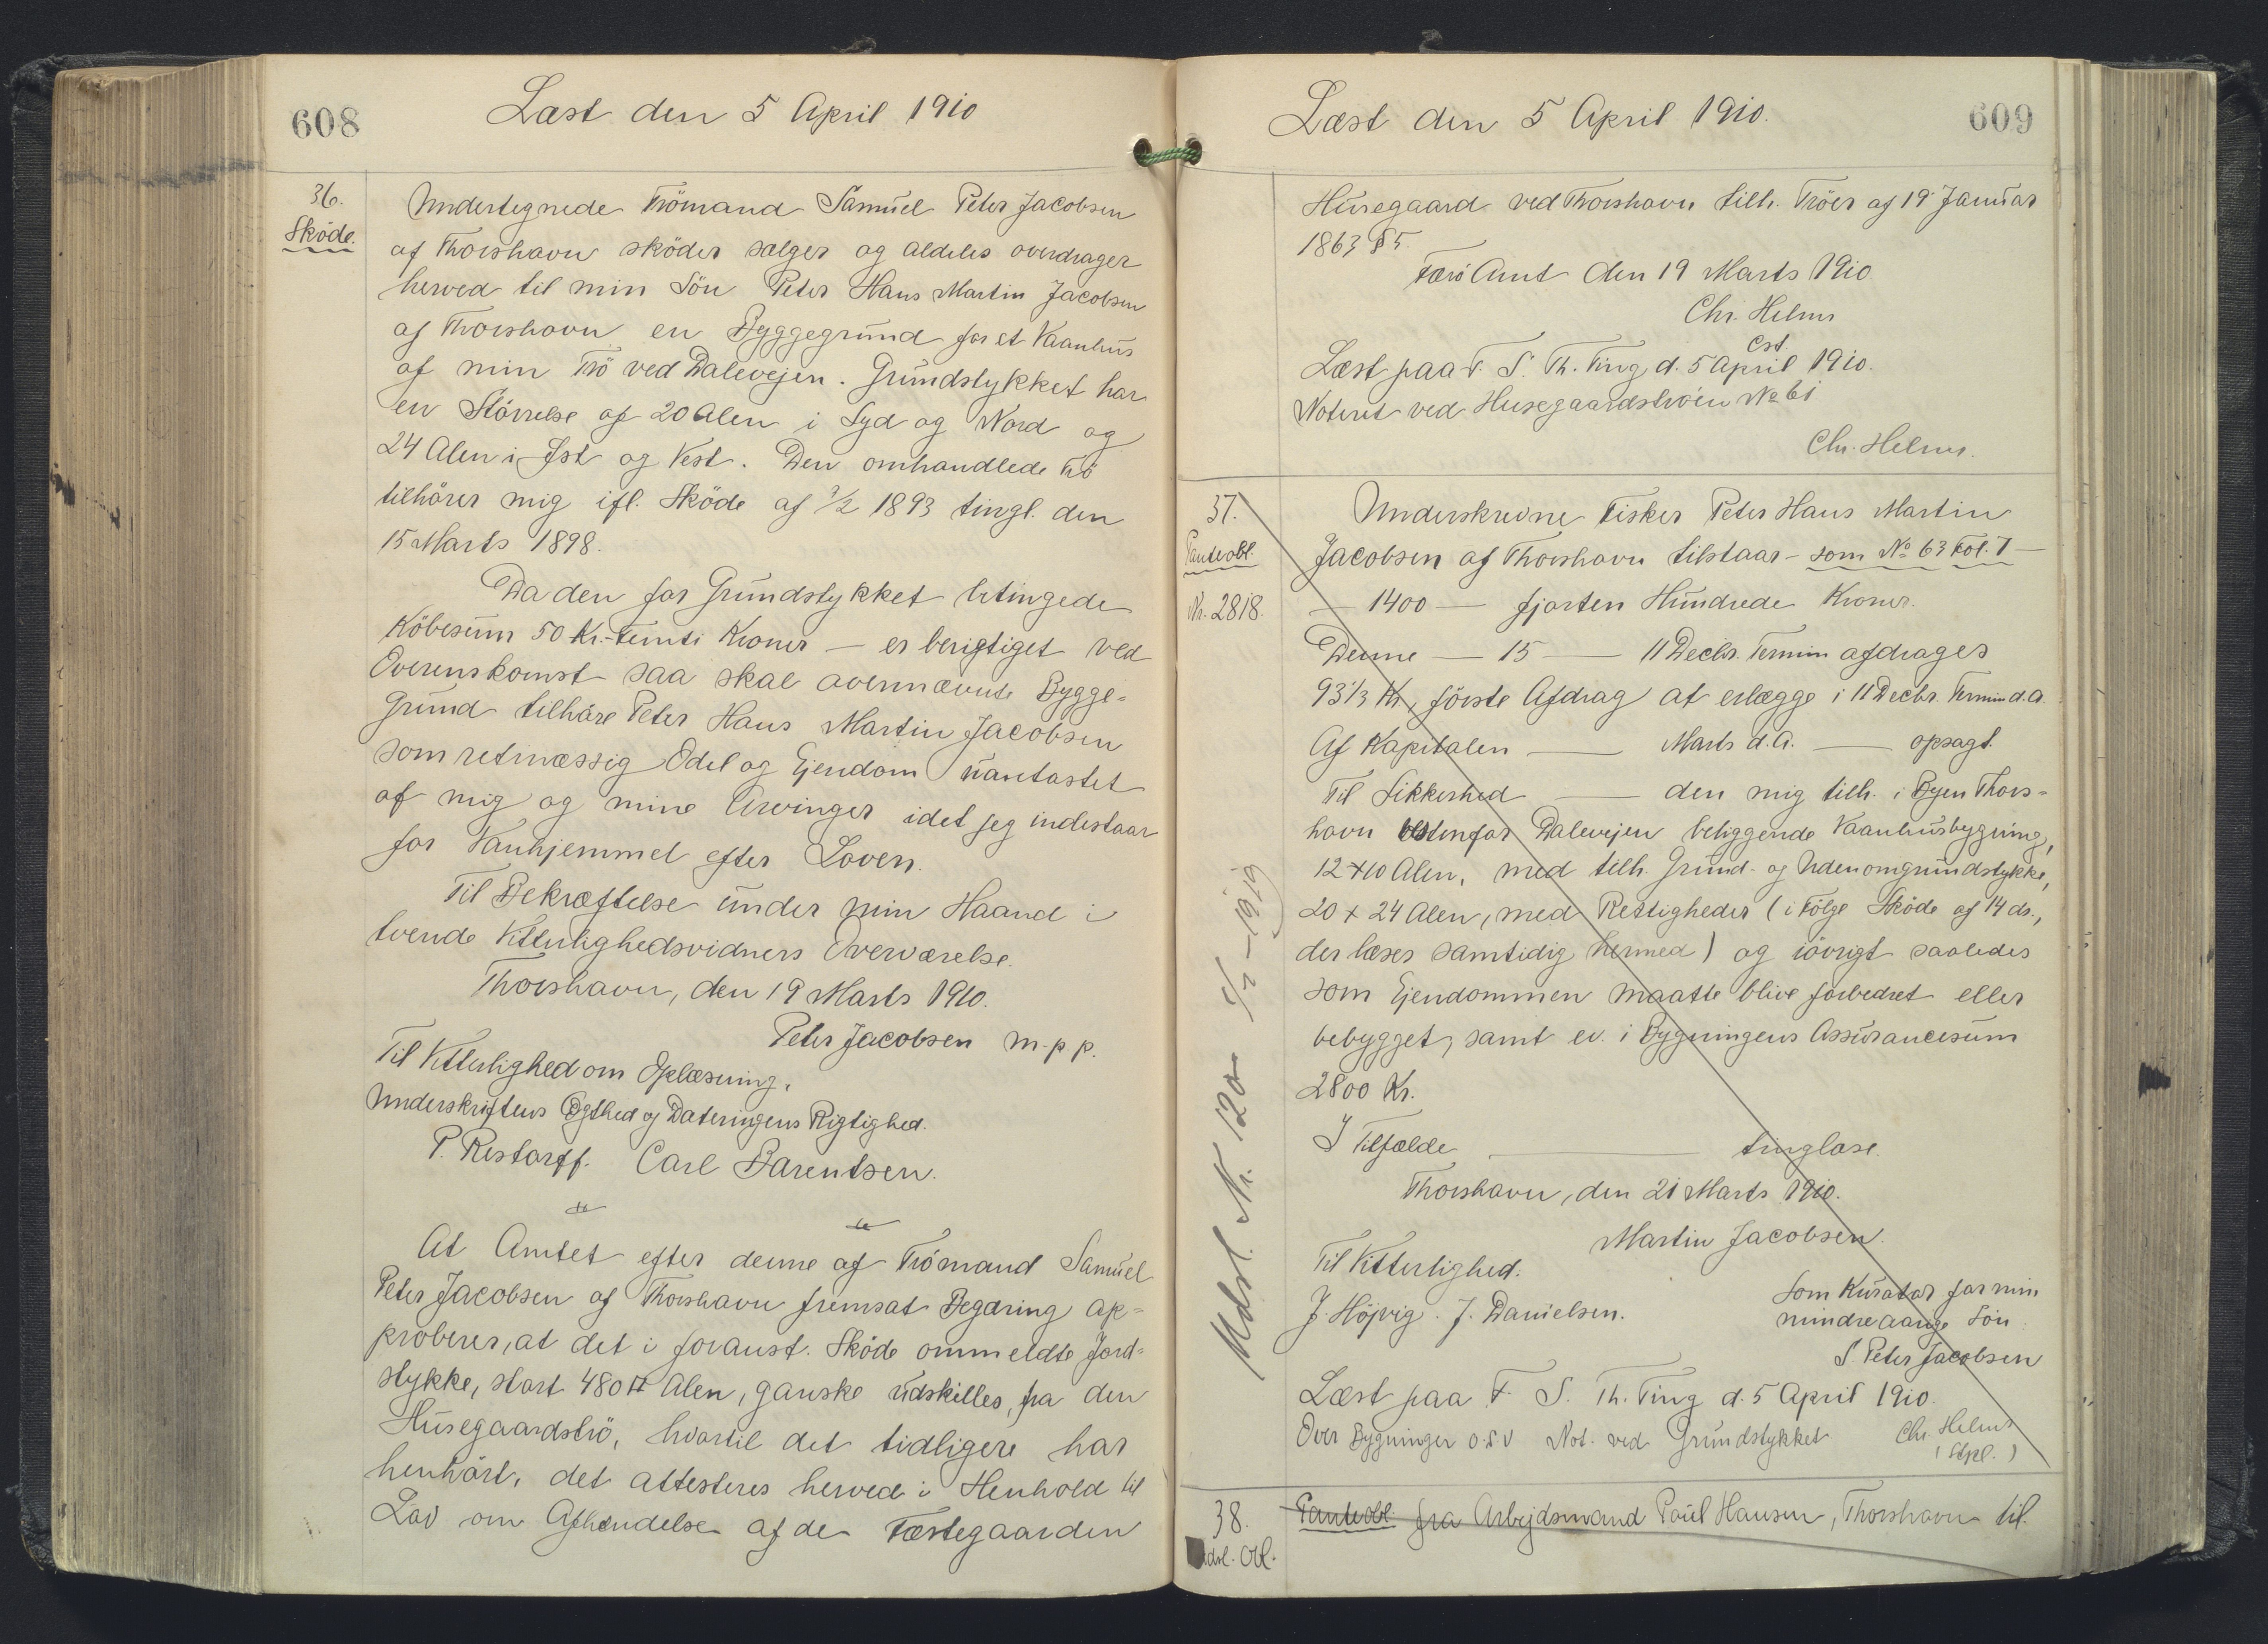 608
Læst den 5 April 1910
36.
Sköde.
Undertegnede Trömand Samuel Peter Jacobsen
af Thorshavn sköder sælger og aldeles overdrager
herved til min Sön Peter Hans Martin Jacobsen
af Thorshavn en Byggegrund for et Vaanhus
af min Trö ved Dalevejen. Grundstykket har
en Störrelse af 20 Alen i Syd og Nord og
24 Alen i Øst og Vest. Den omhandlede Trö
tilhörer mig ifl. Sköde af 7/2 1893 tingl. den
15 Marts 1898.
Da den for Grundstykket betingede
Köbesum 50 Kr. - Femti Kroner — er berigtiget ved
Overenskomst saa skal ovennævnte Bygge-
grund tilhöre Peter Hans Martin Jacobsen
som retmæssig Odel og Ejendom uantastet
af mig og mine Arvinger idet jeg indestaar
for Vanhjemmel efter Loven.
Til Bekræftelse under min Haand i
tvende Vitterlighedsvidners Overværelse.
Thorshavn, den 19 Marts 1910.
Peter Jacobsen m.p.p.
Til Vitterlighed om Oplæsning,
Underskriftens Ægthed og Dateringens Rigtighed.
P. Restorff. Carl Barentsen.
At Amtet efter denne af Trömand Samuel
Peter Jacobsen af Thorshavn fremsat Begæring ap-
proberer, at det i foranst. Sköde ommeldte Jord-
stykke, stort 480 □ Alen, ganske udskilles, fra den
Husegaardströ, hvortil det tidligere har
henhört, det attesteres herved i Henhold til
Lov om Afhændelse af de Fæstegaarden
609
Læst den 5 April 1910.
Husegaard ved Thorshavn tilh. Tröer af 19 Januar
1863 § 5.
Færö Amt den 19 Marts 1910
Chr. Helms
Cst.
Læst paa F. S. Th. Ting d. 5 April 1910.
Noteret ved Husegaardströen № 61
Chr. Helms.
37.
Panteobl.
Nr. 2818.
Underskrevne Fisker Peter Hans Martin
Jacobsen af Thorshavn tilstaar - som № 63 Fol. 7 —
— 1400 — fjorten Hundrede Kroner.
Denne — 15 — 11 Decbr. Termin afdrages
93 1/3 Kr, förste Afdrag at erlægge i 11 Decbr. Termin d.A.
Af Kapitalen — Marts d.A. — opsagt.
Til Sikkerhed — den mig tilh. i Byen Thors-
havn vestenfor Dalevejen beliggende Vaanhusbygning,
12 x 10 Alen, med tilh. Grund- og Udenomgrundstykke,
20 x 24 Alen, med Rettigheder (i Fölge Sköde af 14 ds.,
der læses samtidig hermed) og iövrigt saaledes
som Ejendommen maatte blive forbedret eller
bebygget, samt ev. i Bygningens Assurancesum
2800 Kr.
I Tilfælde — tinglæse.
Thorshavn, den 21 Marts 1910.
Martin Jacobsen.
Til Vitterlighed.
J. Höjvig. J. Danielsen.
Som Kurator for min
mindreaarige Sön
S. Peter Jacobsen
Læst paa F. S. Th. Ting d. 5 April 1910.
Over Bygninger o.s.v Not. ved Grundstykket
Chr. Helms
Udsl. Nr. 120
1919
38.
Udsl. Obl.
Panteobl. fra Arbejdsmand Poul Hansen, Thorshavn til